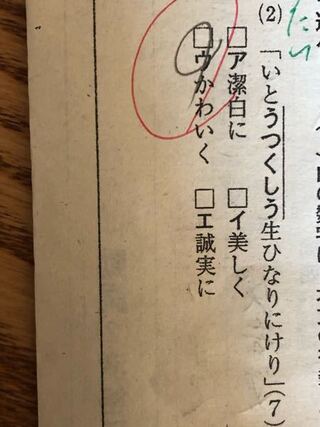 たい
(2)「いとうつくしう生ひなりにけり」(7)
□ア潔白に　□イ美しく
□ウかわいく　□エ誠実に